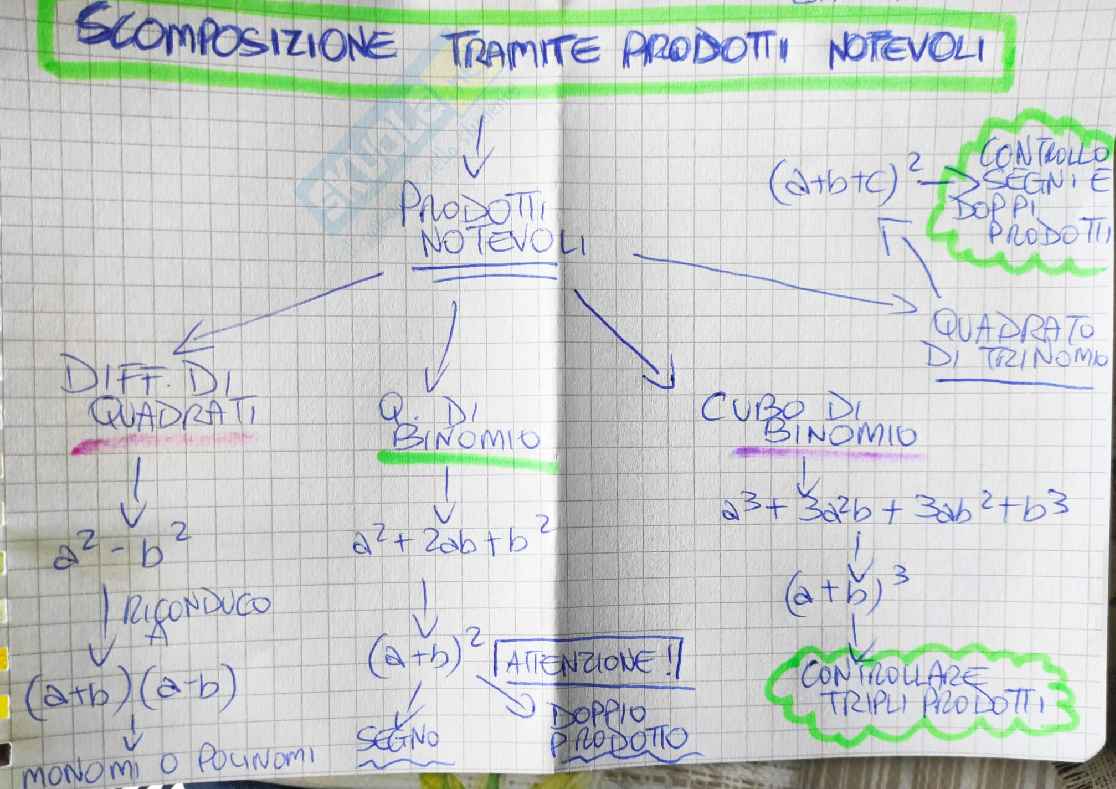 SCOMPOSIZIONE TRAMITE PRODOTTI NOTEVOLI
PRODOTTI
NOTEVOLI
(a+b+c)²
CONTROLLO
SEGNI E
DOPPI
PRODOTTI
QUADRATO
DI TRINOMIO
DIFF. DI
QUADRATI
a² - b²
RICONDUCO
A
(a+b)(a-b)
MONOMI O POLINOMI
Q. DI
BINOMIO
a² + 2ab + b²
(a+b)²
ATTENZIONE!
SEGNO
DOPPIO
PRODOTTO
CUBO DI
BINOMIO
a³ + 3a²b + 3ab² + b³
(a+b)³
CONTROLLARE
TRIPLI PRODOTTI